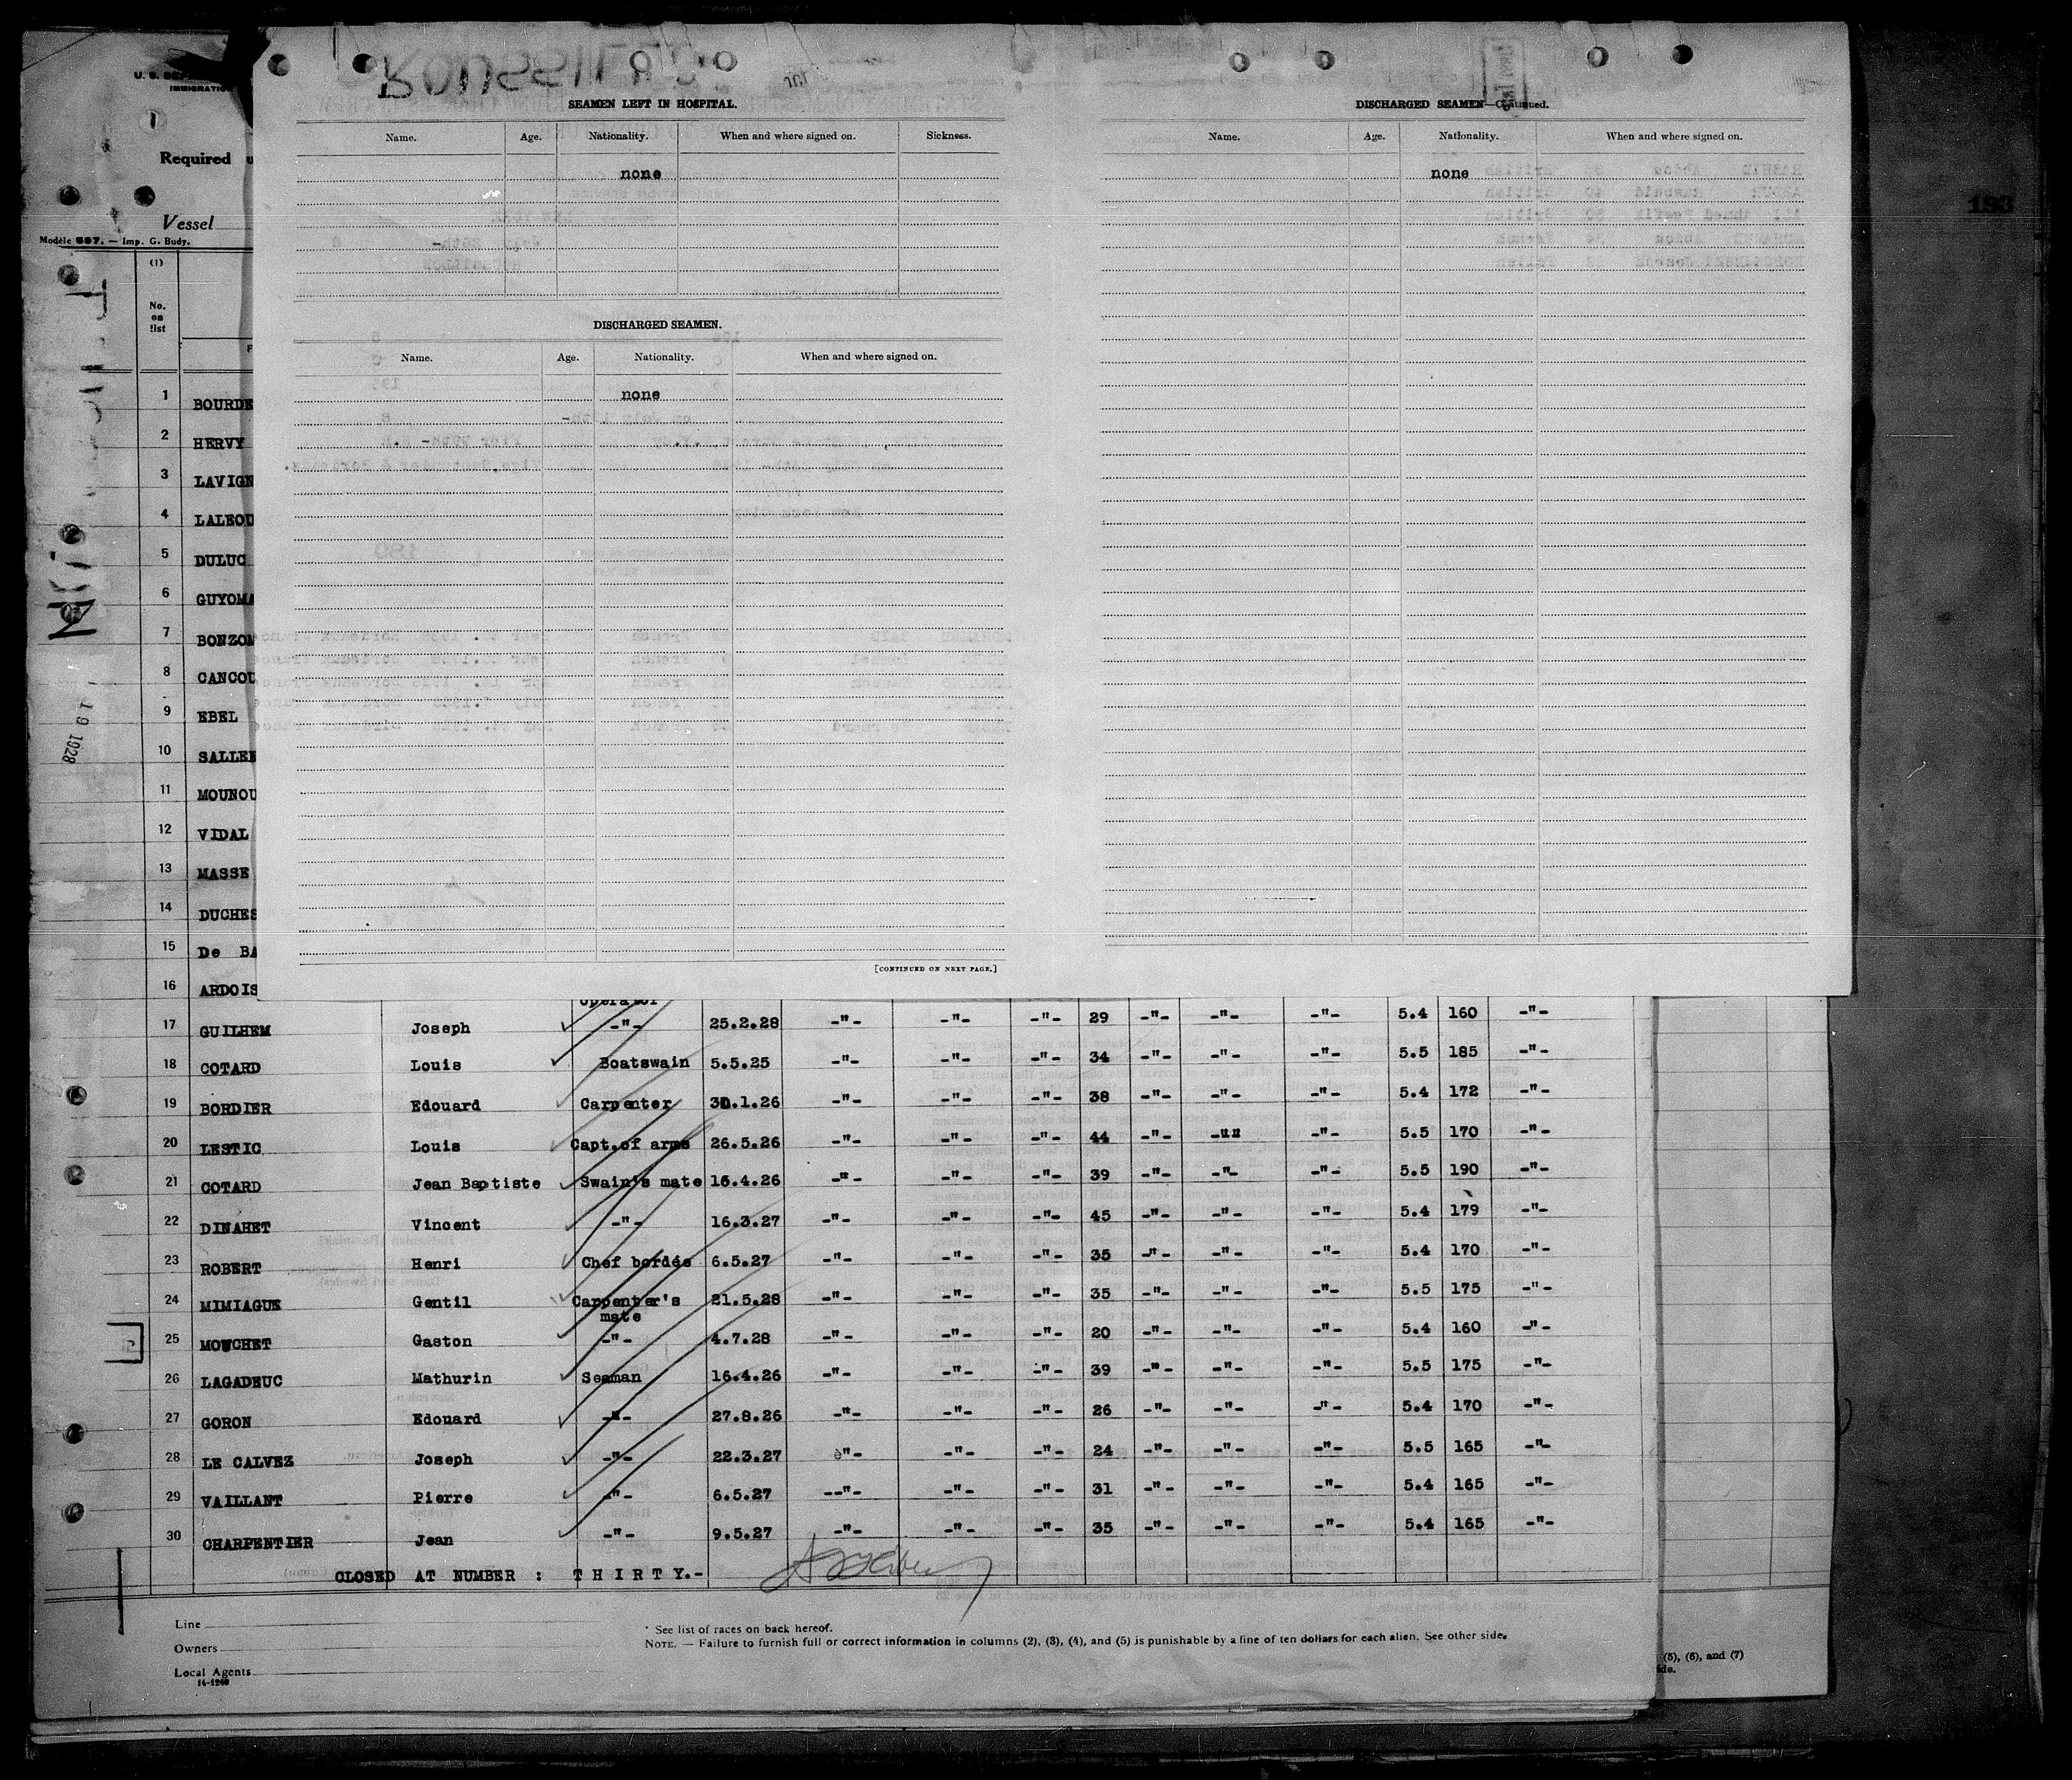 SEAMEN LEFT IN HOSPITAL.
Name. Age. Nationality. When and where signed on. Sickness.
none
DISCHARGED SEAMEN.
Name. Age. Nationality. When and where signed on.
none
[CONTINUED ON NEXT PAGE.]
DISCHARGED SEAMEN—Continued.
Name. Age. Nationality. When and where signed on.
none
193
IMMIGRATION
Required
Vessel
Modèle 587. — Imp. G. Budy.
(1)
No. on list
19 1928
1 BOURDE
2 HERVY
3 LAVIGN
4 LALEOU
5 DULUC
6 GUYOMA
7 BONZON
8 CANCOU
9 EBEL
10 SALLEN
11 MOUNOU
12 VIDAL
13 MASSE
14 DUCHES
15 De BA
16 ARDOIS operator
17 GUILHEM Joseph -"- 25.2.28 -"- -"- -"- 29 -"- -"- -"- 5.4 160 -"-
18 COTARD Louis Boatswain 5.5.25 -"- -"- -"- 34 -"- -"- -"- 5.5 185 -"-
19 BORDIER Edouard Carpenter 30.1.26 -"- -"- -"- 38 -"- -"- -"- 5.4 172 -"-
20 LESTIC Louis Capt.of arms 26.5.26 -"- -"- -"- 44 -"- -"" -"- 5.5 170 -"-
21 COTARD Jean Baptiste Swain's mate 16.4.26 -"- -"- -"- 39 -"- -"- -"- 5.5 190 -"-
22 DINAHET Vincent -"- 16.3.27 -"- -"- -"- 45 -"- -"- -"- 5.4 179 -"-
23 ROBERT Henri Chef bordée 6.5.27 -"- -"- -"- 35 -"- -"- -"- 5.4 170 -"-
24 MIMIAGUE Gentil Carpenter's mate 21.5.28 -"- -"- -"- 35 -"- -"- -"- 5.5 175 -"-
25 MOUCHET Gaston -"- 4.7.28 -"- -"- -"- 20 -"- -"- -"- 5.4 160 -"-
26 LAGADEUC Mathurin Seaman 16.4.26 -"- -"- -"- 39 -"- -"- -"- 5.5 175 -"-
27 GORON Edouard -"- 27.8.26 -"- -"- -"- 26 -"- -"- -"- 5.4 170 -"-
28 LE CALVEZ Joseph -"- 22.3.27 è"- -"- -"- 24 -"- -"- -"- 5.5 165 -"-
29 VAILLANT Pierre -"- 6.5.27 --"- -"- -"- 31 -"- -"- -"- 5.4 165 -"-
30 CHARPENTIER Jean -"- 9.5.27 -"- -"- -"- 35 -"- -"- -"- 5.4 165 -"-
CLOSED AT NUMBER : T H I R T Y.-
Line
Owners
Local Agents
14-1240
* See list of races on back hereof.
NOTE. — Failure to furnish full or correct information in columns (2), (3), (4), and (5) is punishable by a fine of ten dollars for each alien. See other side.
(5), (6), and (7)
ide.